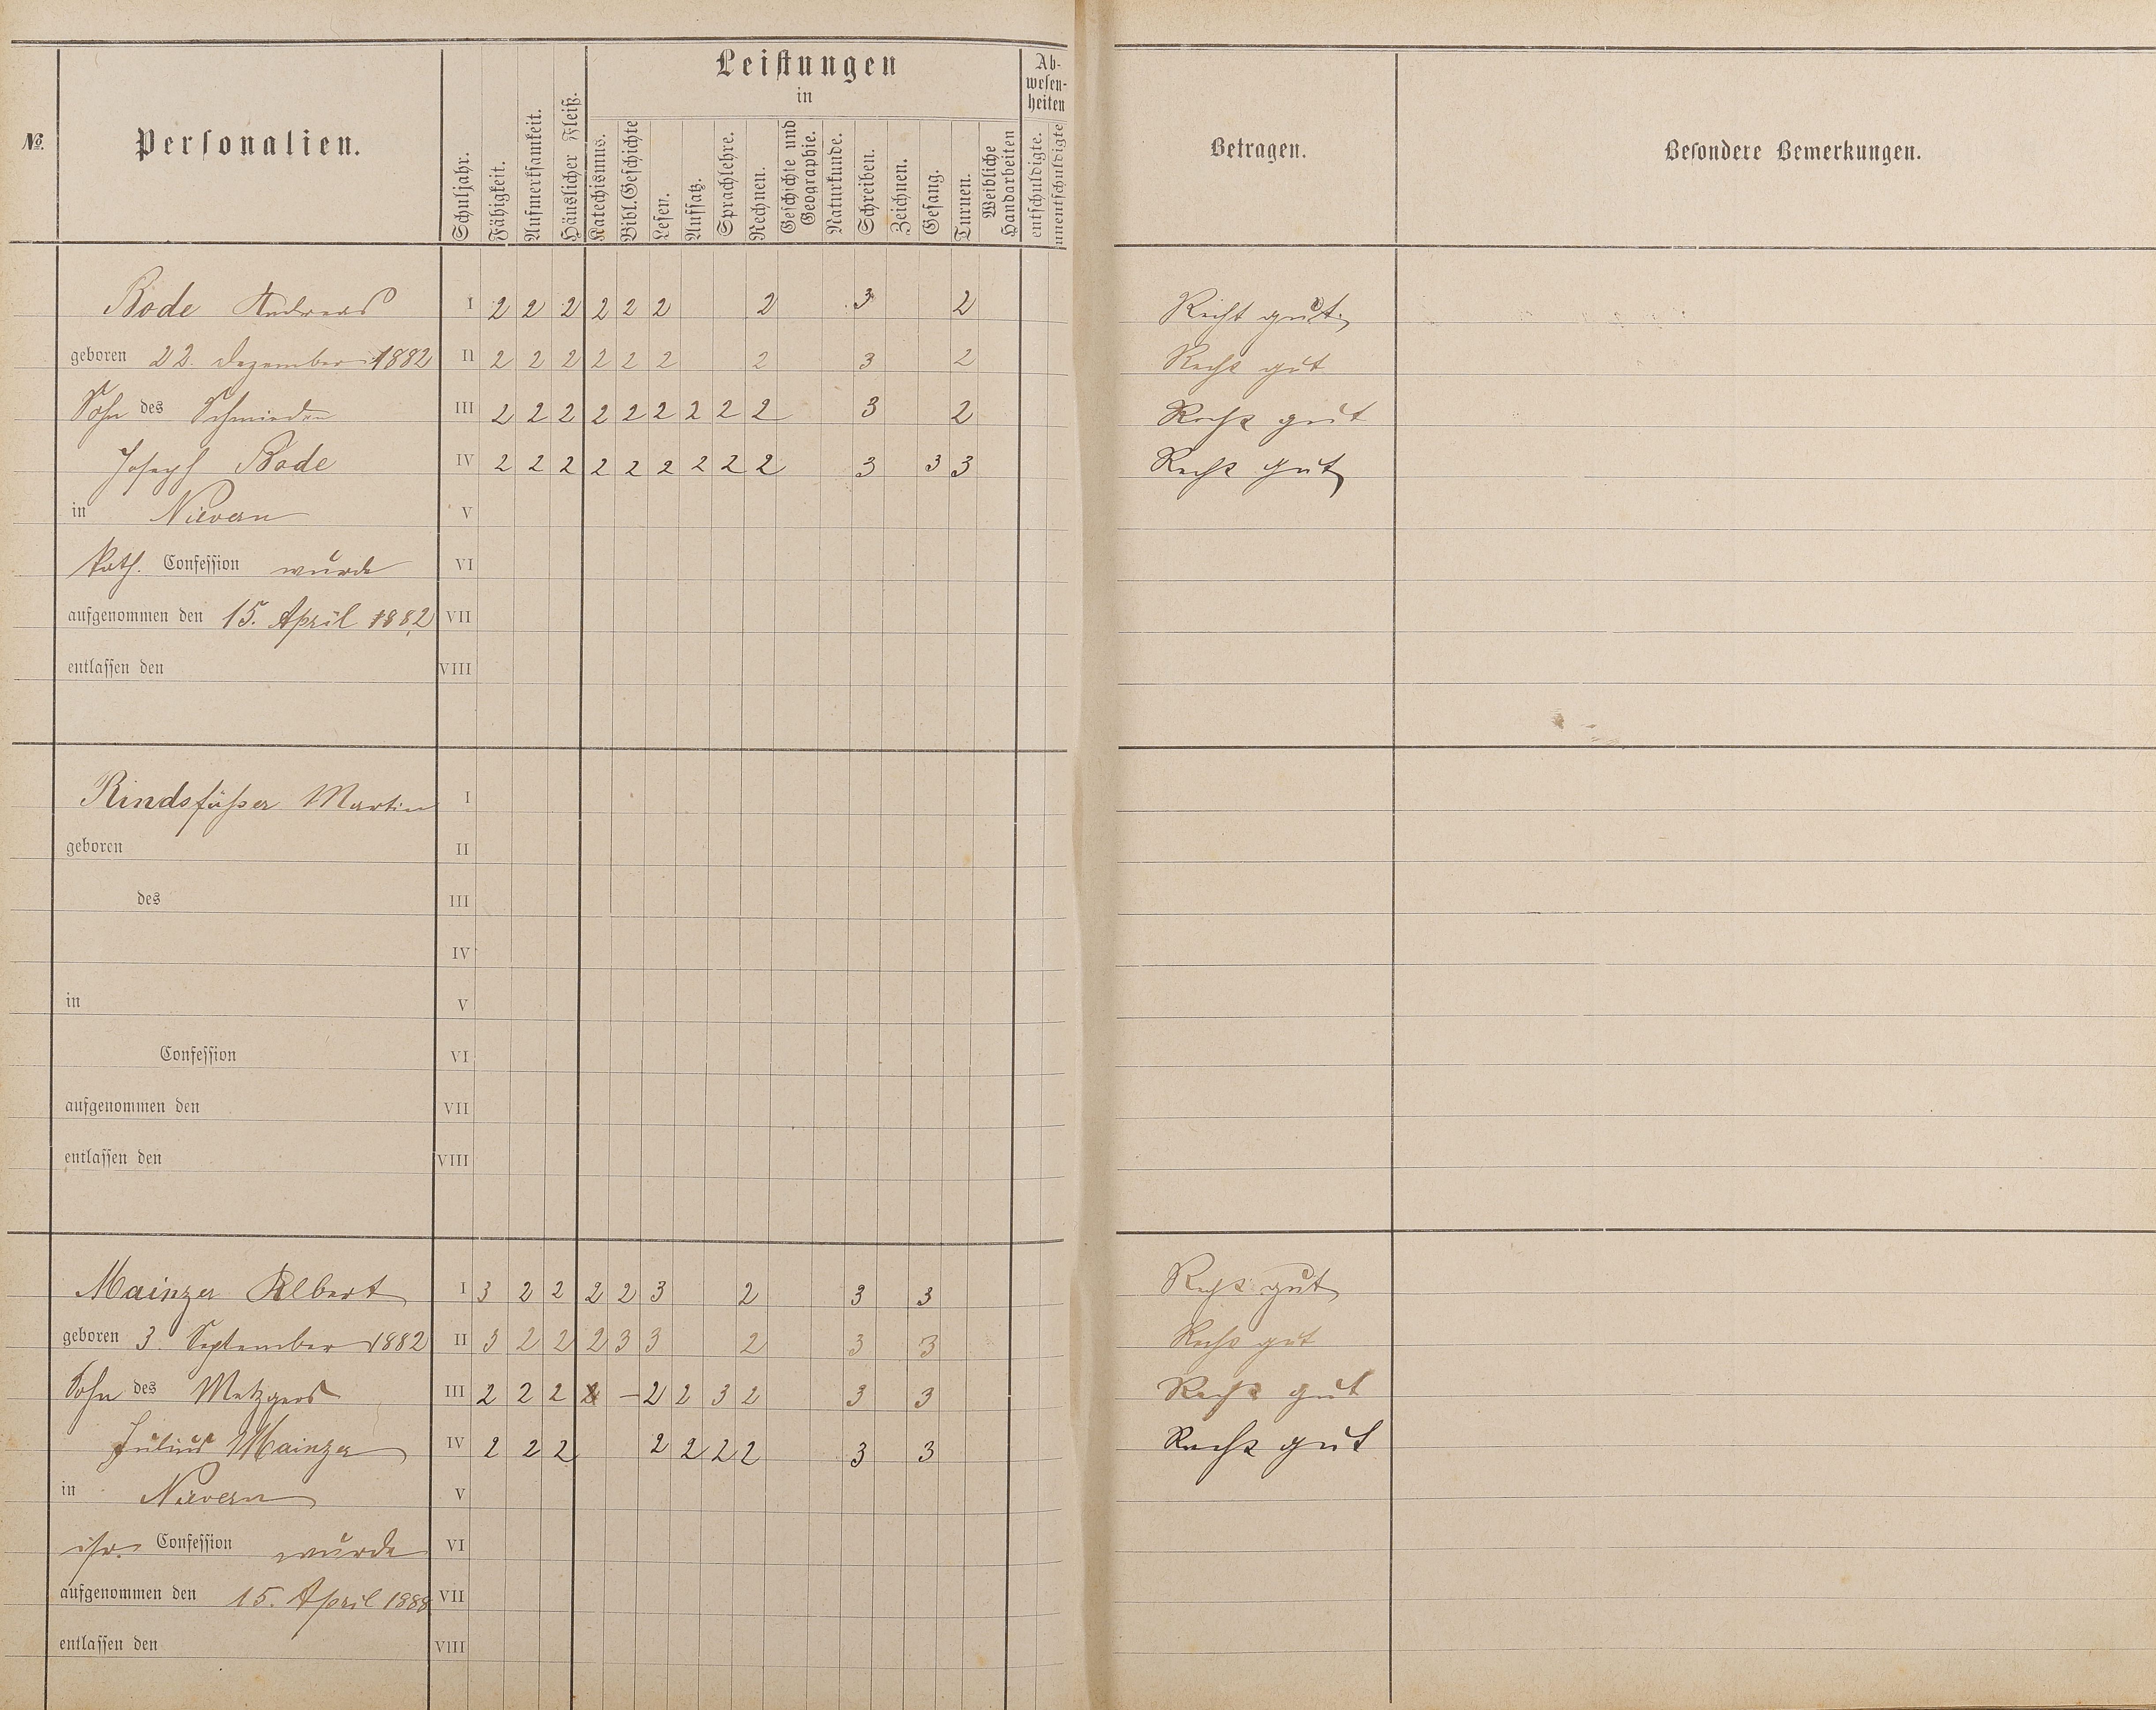 Leistungen
in
Abwesenheiten
№
Personalien.
Schuljahr.
Fähigkeit.
Aufmerksamkeit.
Häuslicher Fleiß.
Katechismus.
Bibl. Geschichte
Lesen.
Aufsatz.
Sprachlehre.
Rechnen.
Geschichte und Geographie.
Naturkunde.
Schreiben.
Zeichnen.
Gesang.
Turnen.
Weibliche Handarbeiten
entschuldigte.
unentschuldigte
Betragen.
Besondere Bemerkungen.
Bode Andreas I 2 2 2 2 2 2 2 3 2 Recht gut.
geboren 22. Dezember 1882 II 2 2 2 2 2 2 2 3 2 Recht gut
Sohn des Schmieden III 2 2 2 2 2 2 2 2 2 3 2 Recht gut
Joseph Bode IV 2 2 2 2 2 2 2 2 2 3 3 3 Recht gut
in Nievern V
kath. Confession wurde VI
aufgenommen den 15. April 1882 VII
entlassen den VIII
Rindsfüßer Martin I
geboren II
des III
IV
in V
Confession VI
aufgenommen den VII
entlassen den VIII
Mainzer Albert I 3 2 2 2 2 3 2 3 3 Recht gut
geboren 3. September 1882 II 3 2 2 2 3 3 2 3 3 Recht gut
Sohn des Metzgers III 2 2 2 – 2 2 3 2 3 3 Recht gut
Julius Mainzer IV 2 2 2 2 2 2 2 3 3 Recht gut
in Nievern V
isr. Confession wurde VI
aufgenommen den 15. April 1888 VII
entlassen den VIII